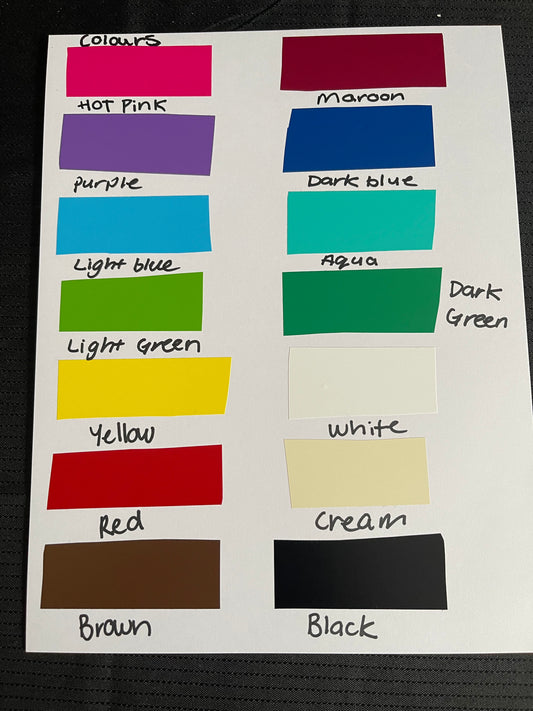 Colours
Hot Pink
Maroon
purple
Dark blue
Light blue
Aqua
Light Green
Dark
Green
Yellow
White
Red
Cream
Brown
Black